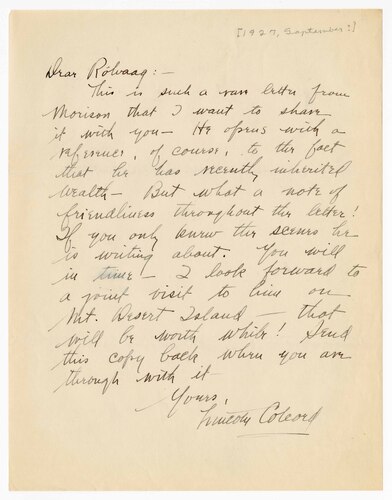 [1927, September?]
Dear Rölvaag: -
This is such a rare letter from
Morison that I want to share
it with you - He opens with a
reference, of course, to the fact
that he has recently inherited
wealth - But what a note of
friendliness throughout the letter!
If you only knew the scenes he
is writing about. You will
in time - I look forward to
a joint visit to him on
Mt. Desert Island - that
will be worth while! Send
this copy back when you are
through with it
Yours,
Lincoln Colcord